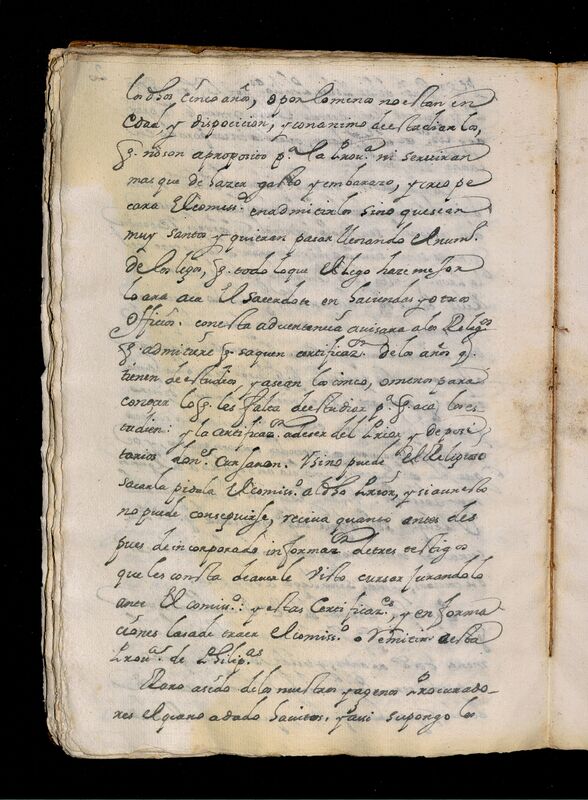 los dhos cinco años, o por lo menos no estan en
edad, y disposicion, y con animo de estudiarlos,
q. no son a proposito pa. la Prova. ni serviran
mas que de hazer gasto y embarazo, y creo pe
cara El comisso. en admitirlos sino que sean
muy santos y quieran pasar llenando el num.
de los legos, q. todo lo que el lego haze mejor
lo ara aca El sacerdote en haciendas y otros
officios. con esta advertencia avisara a los Religos
q. admitiere q. saquen certificazon. de los años q.
tienen de estudios, y asean los cinco, o menos para
conocer lo q. les falta de estudiar pa. q. aca los es
tudien: y la certificazon. a de ser del Prior, y deposi
tarios. Y sino puede El Religioso
sacarla pidala El comisso. al dho Prior, y si aun esto
no puede conseguirse, reciva quanto antes des
pues de incorporado informazon de tres testigos
que les consta deaverle visto cursar jurandolo
ante El comisso.: y estas Certificazes, y en forma
ciones las a de traer El comisso. o remitir a esta
Prova. de Philipas
El oro asido de los nuestros y agenos Procurado
res el quano a dado havitos. y assi supongo los